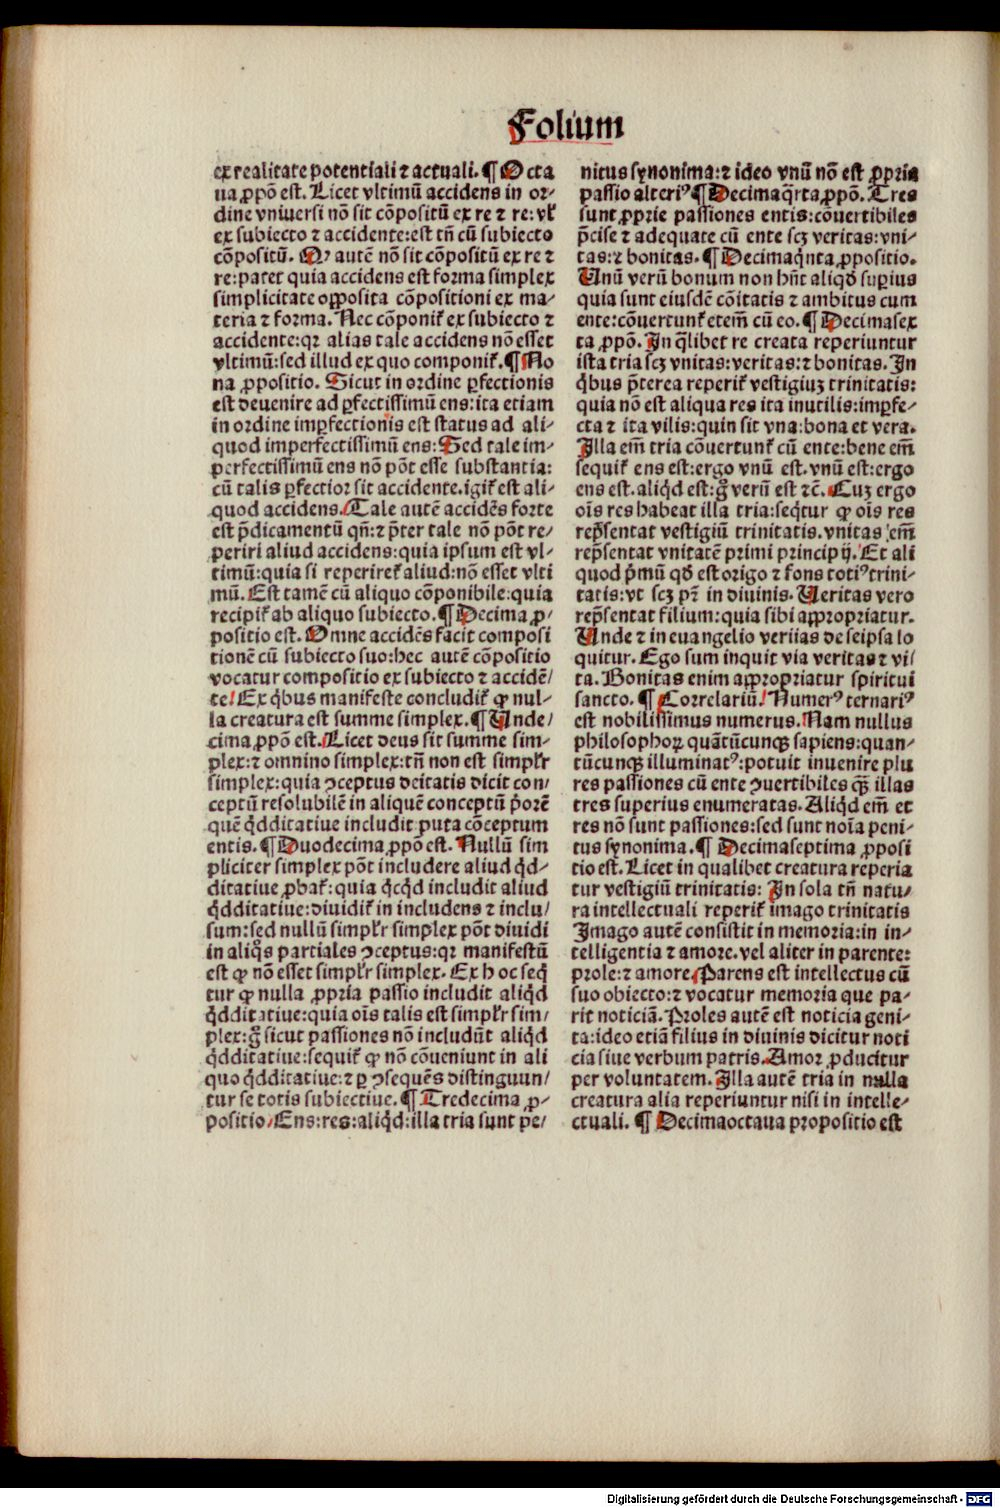 Folium
ex realitate potentiali ⁊ actuali. ¶ Octa
ua ꝓpõ est. Licet vltimũ accidens in or-
dine vniuersi nõ sit cõpositũ ex re ⁊ re: vł
ex subiecto ⁊ accidente: est tñ cũ subiecto
cõpositũ. Qꝫ autẽ nõ sit cõpositũ ex re ⁊
re: patet quia accidens est forma simplex
simplicitate opposita cõpositioni ex ma-
teria ⁊ forma. Nec cõponiť ex subiecto ⁊
accidente: qꝛ alias tale accidens nõ esset
vltimũ: sed illud ex quo componiť. ¶ No
na ꝓpositio. Sicut in ordine ꝑfectionis
est deuenire ad ꝑfectissimũ ens: ita etiam
in ordine imꝑfectionis est status ad ali-
quod imperfectissimũ ens: Sed tale im-
perfectissimũ ens nõ põt esse substantia:
cũ talis ꝑfectior sit accidente. igiť est ali-
quod accidens. Tale autẽ accidẽs forte
est p̃dicamentũ qñ: ⁊ p̃ter tale nõ põt re-
periri aliud accidens: quia ipsum est vl-
timũ: quia si reperireť aliud: nõ esset vlti
mũ. Est tamẽ cũ aliquo cõponibile: quia
recipiť ab aliquo subiecto. ¶ Decima ꝓ-
positio est. Omne accidẽs facit composi
tionẽ cũ subiecto suo: hec autẽ cõpositio
vocatur compositio ex subiecto ⁊ acciden/
te! Ex q̃bus manifeste concludiť ꝙ nul-
la creatura est summe simplex. ¶ Unde/
cima ꝓpõ est. Licet deus sit summe sim-
plex: ⁊ omnino simplex: tñ non est simpłr
simplex: quia ↄceptus deitatis dicit con/
ceptũ resolubilẽ in aliquẽ conceptũ p̃orẽ
quẽ q̃dditatiue includit puta cõceptum
entis. ¶ Duodecima ꝓpõ est. Nullũ sim
pliciter simplex põt includere aliud q̃d-
ditatiue ꝓbať: quia q̃cq̃d includit aliud
q̃dditatiue: diuidiť in includens ⁊ inclu/
sum: sed nullũ simpłr simplex põt diuidi
in aliq̃s partiales ↄceptus: qꝛ manifestũ
est ꝙ nõ esset simpłr simplex. Ex hoc seq̃
tur ꝙ nulla ꝓpria passio includit aliq̃d
q̃dditatiue: quia oĩs talis est simpłr sim/
plex: g̃ sicut passiones nõ includũt aliq̃d
q̃dditatiue: sequiť ꝙ nõ cõueniunt in ali
quo q̃dditatiue: ⁊ ꝑ ↄsequẽs distinguun/
tur se totis subiectiue. ¶ Tredecima ꝓ-
positio/ Ens: res: aliq̃d: illa tria sunt pe/
nitus synonima: ⁊ ideo vnũ nõ est ꝓpria
passio alteriꝰ ¶ Decimaq̃rta ꝓpõ. Tres
sunt ꝓprie passiones entis: cõuertibiles
p̃cise ⁊ adequate cũ ente scꝫ veritas: vni-
tas: ⁊ bonitas. ¶ Decimaq̃nta ꝓpositio.
Unũ verũ bonum non hñt aliqd̃ suꝑius
quia sunt eiusdẽ cõitatis ⁊ ambitus cum
ente: cõuertunť etem̃ cũ eo. ¶ Decimasex
ta ꝓpõ. In q̃libet re creata reperiuntur
ista tria scꝫ vnitas: veritas: ⁊ bonitas. In
q̃bus p̃terea reperiť vestigiuꝫ trinitatis:
quia nõ est aliqua res ita inutilis: imꝑfe-
cta ⁊ ita vilis: quin sit vna: bona et vera.
Illa em̃ tria cõuertunť cũ ente: bene em̃
sequiť ens est: ergo vnũ est. vnũ est: ergo
ens est. aliq̃d est: g̃ verũ est ⁊c̃. Cuꝫ ergo
oĩs res habeat illa tria: seq̃tur ꝙ oĩs res
rep̃sentat vestigiũ trinitatis. vnitas em̃
rep̃sentat vnitatẽ primi principij. Et ali
quod p̃mũ qd̃ est origo ⁊ fons totiꝰ trini-
tatis: vt scꝫ pr̃ in diuinis. Ueritas vero
rep̃sentat filium: quia sibi appropriatur.
Unde ⁊ in euangelio veriias de seipsa lo
quitur. Ego sum inquit via veritas ⁊ vi/
ta. Bonitas enim appropriatur spiritui
sancto. ¶ Correlariũ! Numerꝰ ternariꝰ
est nobilissimus numerus. Nam nullus
philosophoꝝ quãtũcunqꝫ sapiens: quan-
tũcunqꝫ illuminatꝰ: potuit inuenire plu
res passiones cũ ente ↄuertibiles q̃ꝫ illas
tres superius enumeratas. Aliq̃d em̃ et
res nõ sunt passiones: sed sunt noĩa peni-
tus synonima. ¶ Decimaseptima ꝓposi
tio est. Licet in qualibet creatura reperia
tur vestigiũ trinitatis: In sola tñ natu/
ra intellectuali reperiť imago trinitatis
Imago autẽ consistit in memoria: in in-
telligentia ⁊ amore. vel aliter in parente:
prole: ⁊ amore. Parens est intellectus cũ
suo obiecto: ⁊ vocatur memoria que pa-
rit noticiã. Proles autẽ est noticia geni-
ta: ideo etiã filius in diuinis dicitur noti
cia siue verbum patris. Amor ꝓducitur
per voluntatem. Illa autẽ tria in nulla
creatura alia reperiuntur nisi in intelle-
ctuali. ¶ Decimaoctaua propositio est
Digitalisierung gefördert durch die Deutsche Forschungsgemeinschaft - DFG